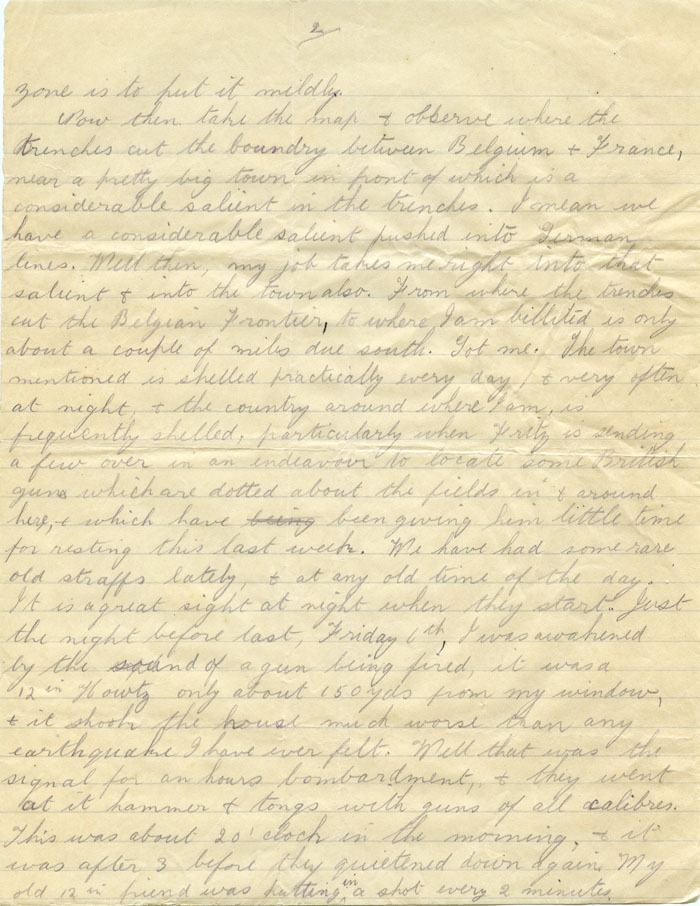 2
zone is to put it mildly.
Now then take the map & observe where the
trenches cut the boundry between Belgium & France,
near a pretty big town in front of which is a
considerable salient in the trenches. I mean we
have a considerable salient pushed into German
lines. Well then, my job takes me right into that
salient & into the town also. From where the trenches
cut the Belgian Frontier, to where I am billited is only
about a couple of miles due south. Got me. The town
mentioned is shelled practically every day, & very often
at night, & the country around where I am, is
frequently shelled, particularly when Fritz is sending
a few over in an endeavour to locate some British
guns which are dotted about the fields in & around
here, & which have being been giving him little time
for resting this last week. We have had some rare
old straffs lately, & at any old time of the day.
It is a great sight at night when they start. Just
the night before last, Friday 6th, I was awakened
by the sound of a gun being fired, it was a
12 in Howtz only about 150 yds from my window,
& it shook the house much worse than any
earthquake I have ever felt. Well that was the
signal for an hours bombardment, & they went
at it hammer & tongs with guns of all calibres.
This was about 2 o'clock in the morning, & it
was after 3 before they quietened down again. My
old 12 in friend was putting in a shot every 2 minutes.